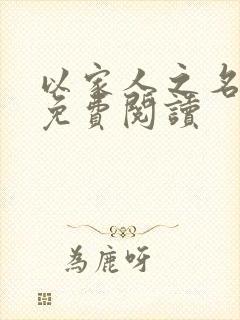 以家人之名
免費閱讀
為鹿呀